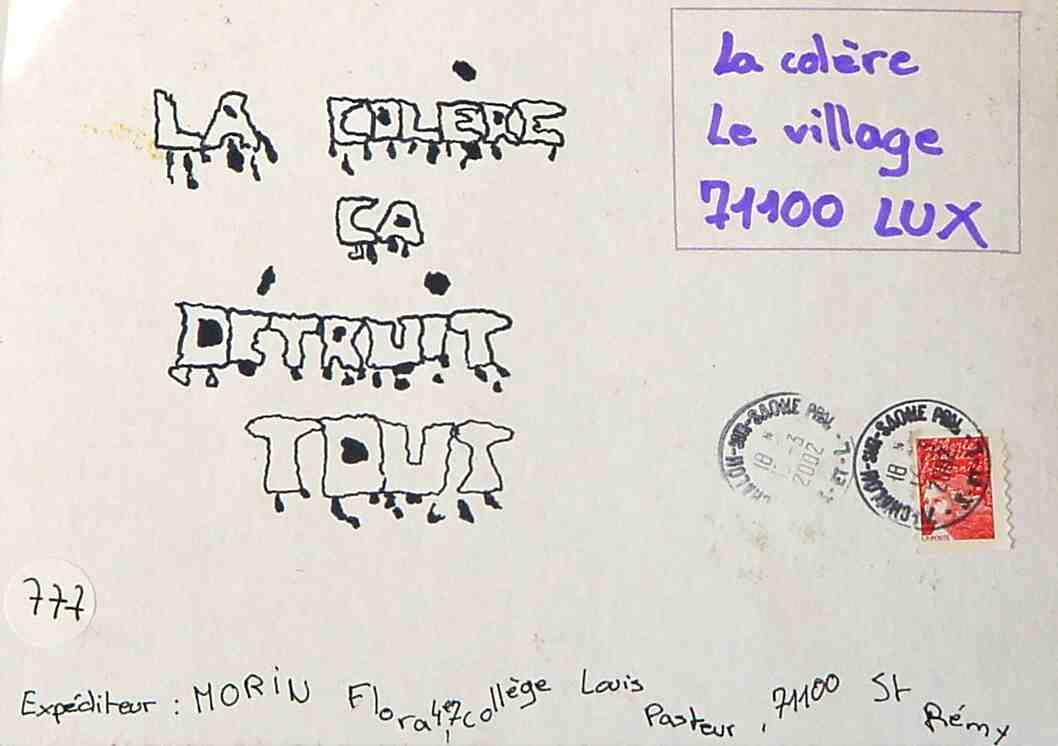 LA COLÈRE
CA
DÉTRUIT
TOUT
La colère
Le village
71100 LUX
CHALON-SUR-SAONE PPAL
18 H
2002
CHALON-SUR-SAONE PPAL
18 H
LA POSTE
777
Expéditeur : MORIN Flora collège Louis Pasteur, 71100 St Rémy